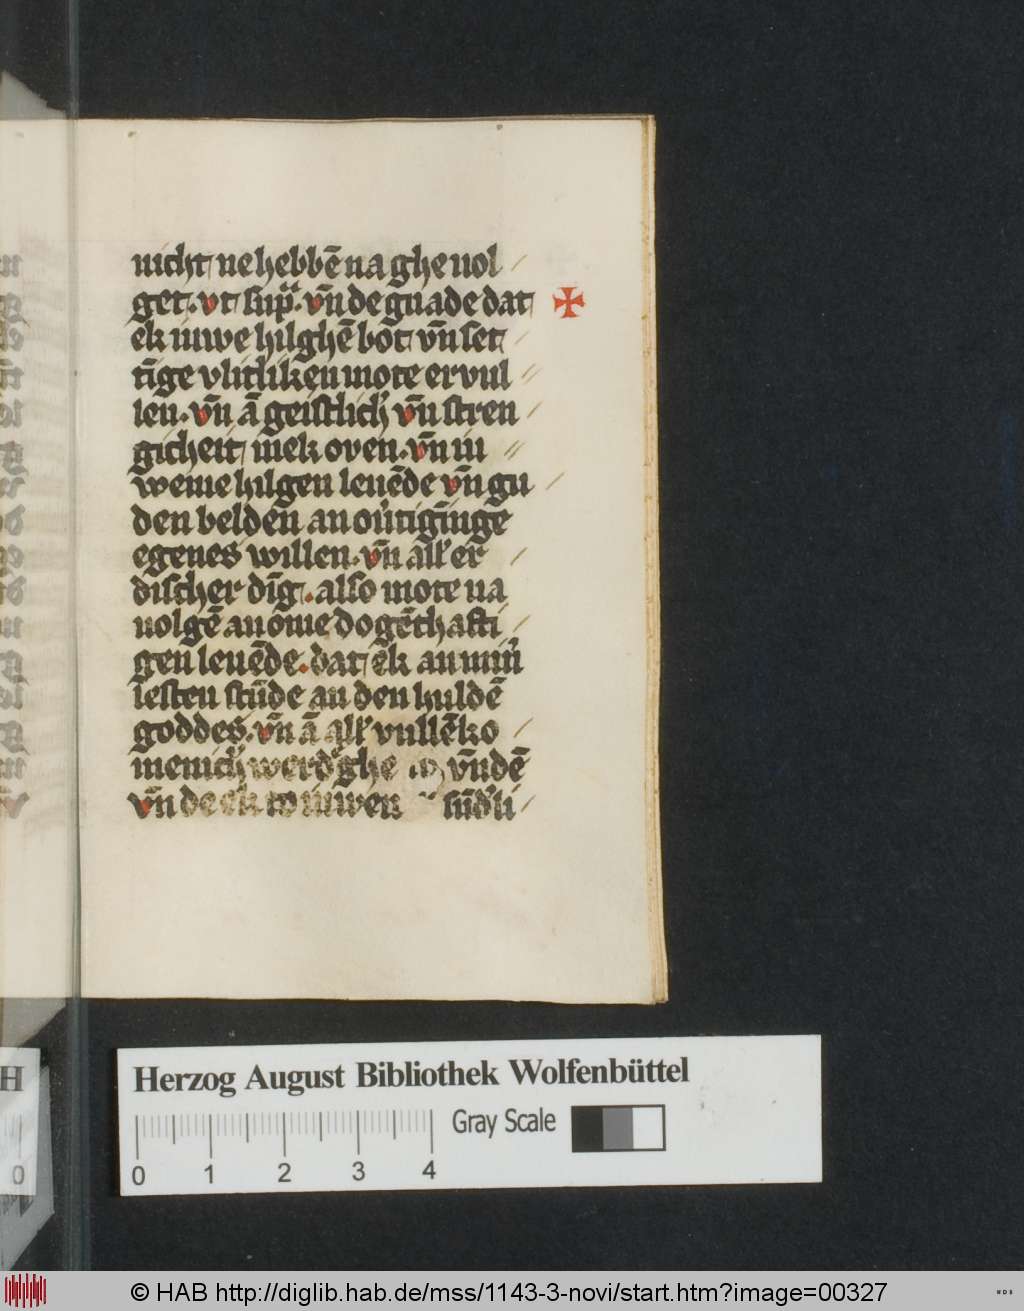 nicht ne hebbē na ghe uol
get. vt sup̄. vn̄ de gnade dat
ek iuwe hilghē bōt vn̄ set
tīge vlitlikē mote ervul
len. vn̄ ā geistlich' vn̄ stren
gicheit mek oven. vn̄ iu
weme hilgen leuēde vn̄ gu
den belden an
egenes willen. vn̄ all' er
discher dīg. also mote na
uolgē an ōme dogēthafti
gen leuēde. dat ek an
lesten stūde an den huldē
goddes. vn̄ ā all' vullēko
menich' werd' ghe vūdē
vn̄ de ek to iuwen sūd'li
Herzog August Bibliothek Wolfenbüttel
Gray Scale
0 1 2 3 4
H
0
© HAB http://diglib.hab.de/mss/1143-3-novi/start.htm?image=00327